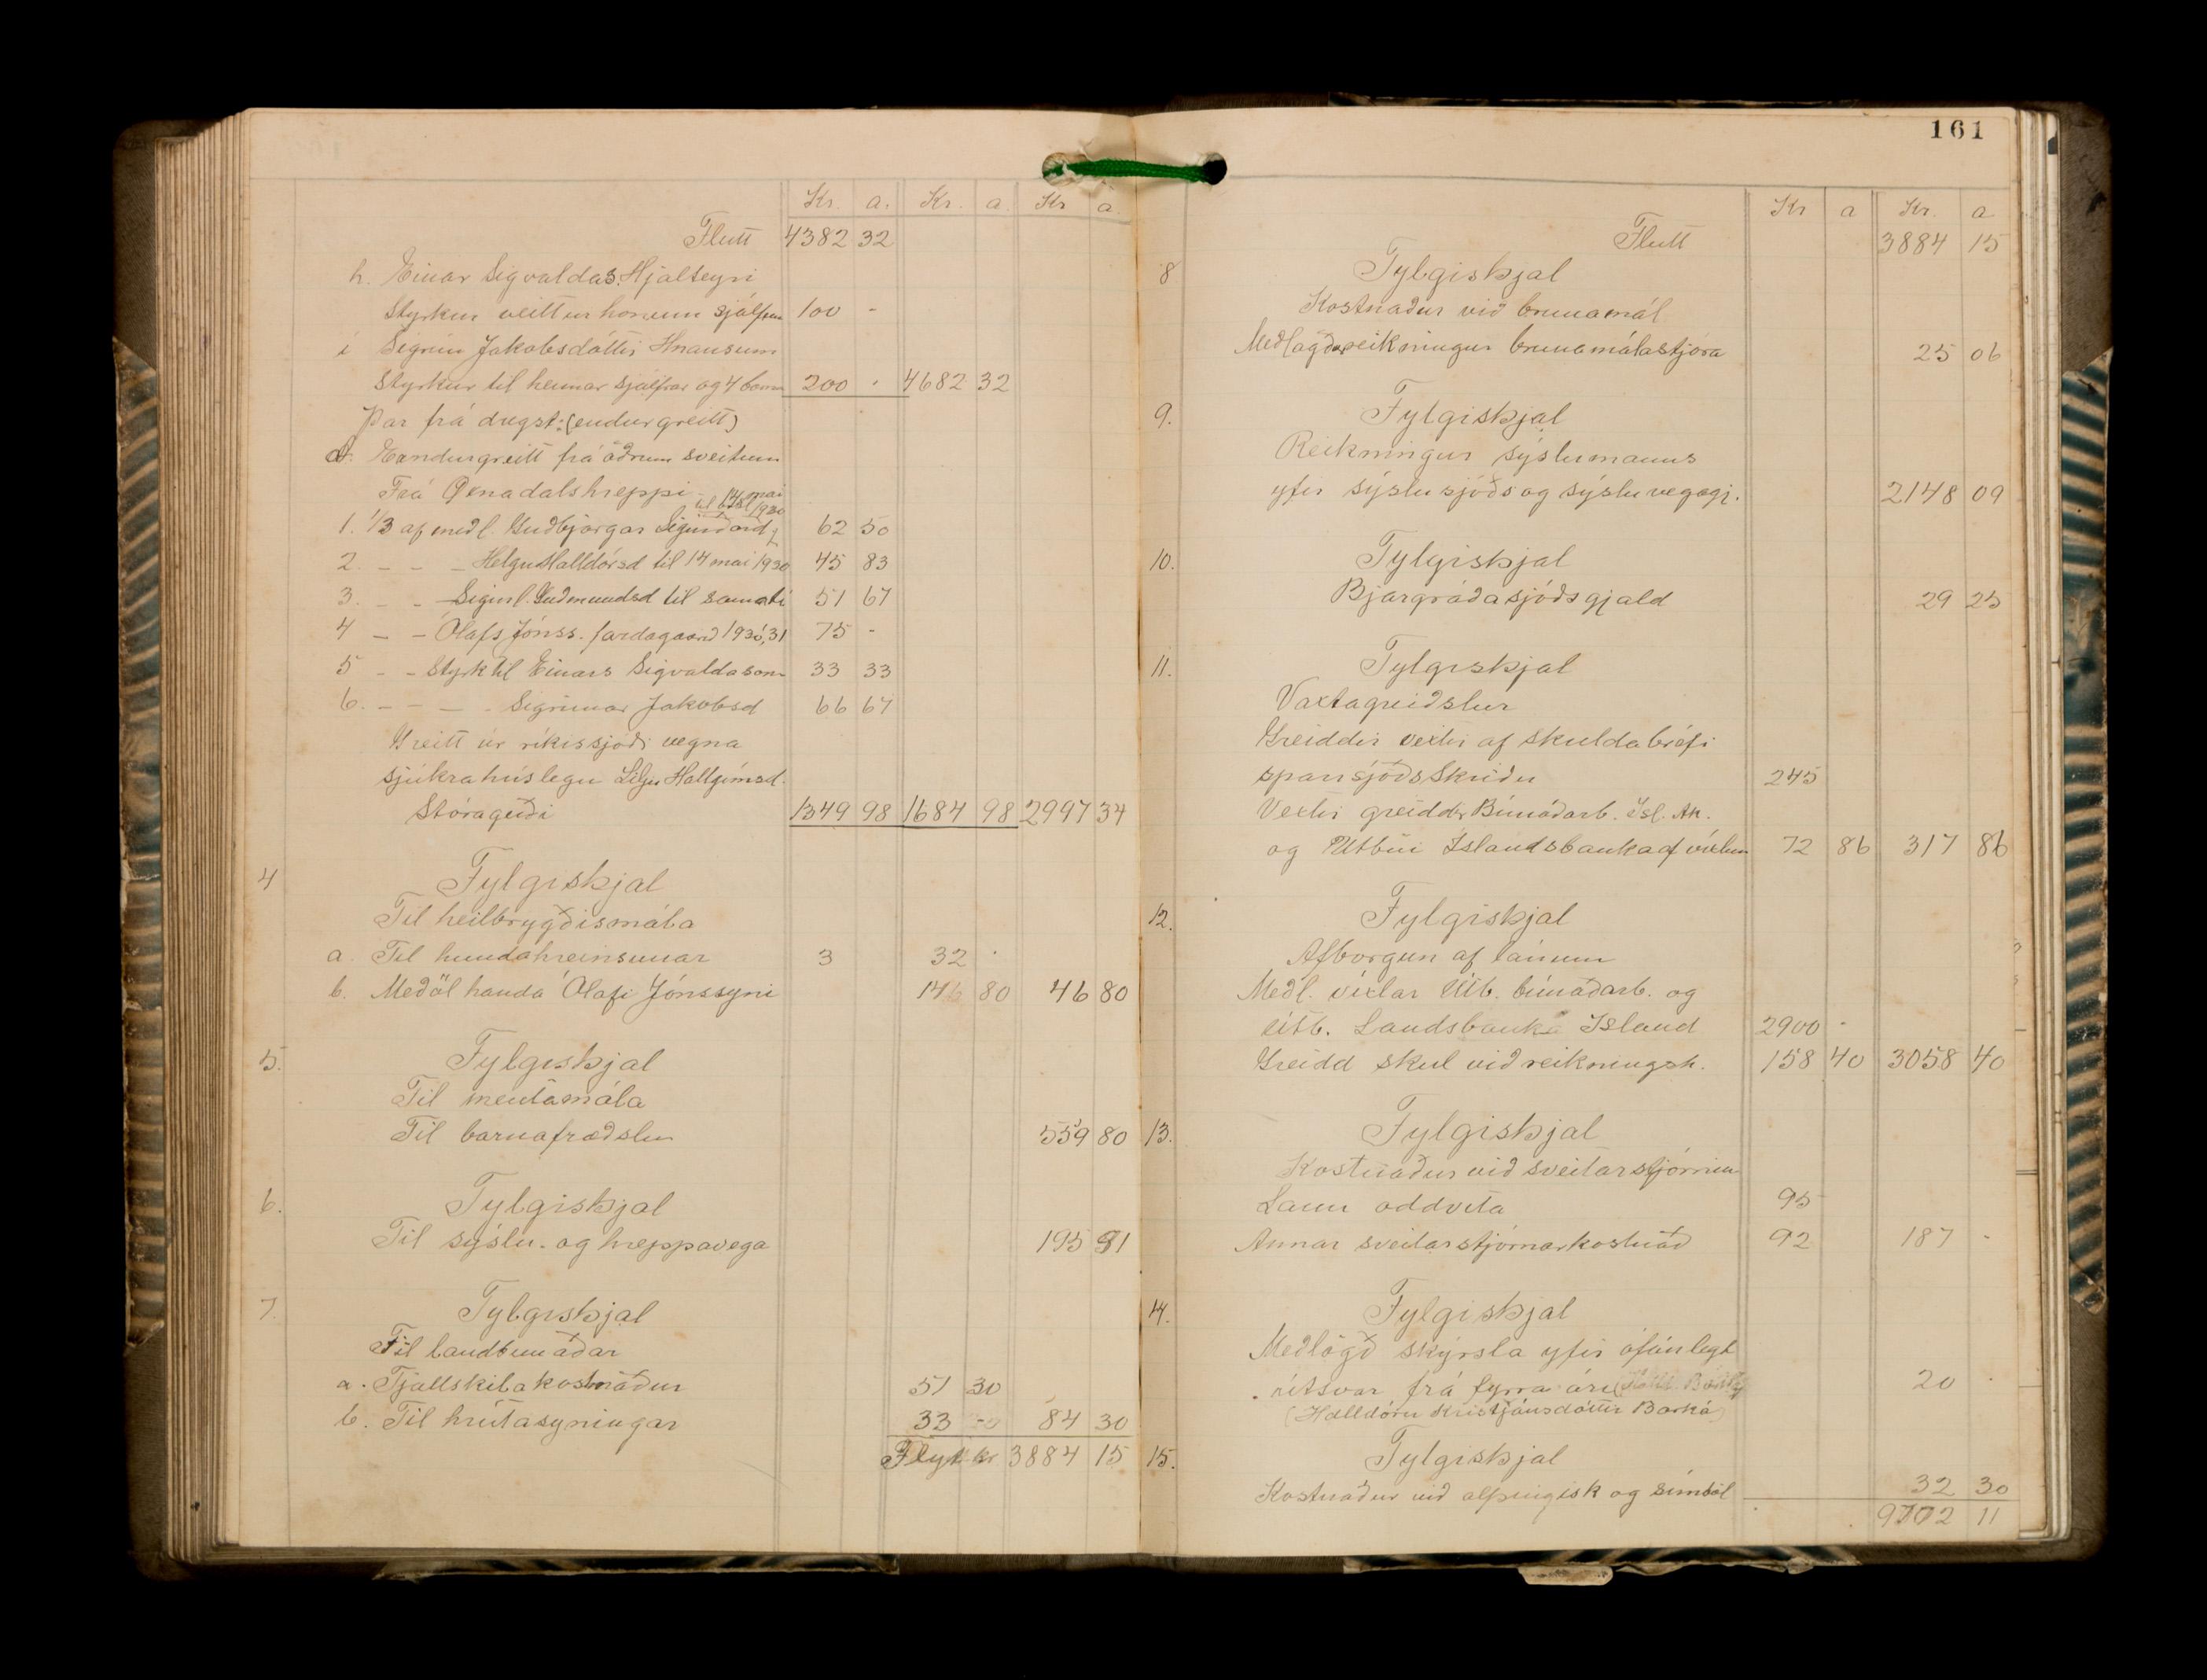 Kr. a. Kr. a. Kr a.
Flutt 4382 32
h. Einar Sigvaldas. Hjalteyri
Styrkur veittur honum sjálfum 100 -
i Sigrún Jakobsdóttir Hrausum
Styrkur til hennar sjálfrar og 4 barna 200 . 4682 32
Þar frá dregst: (endurgreitt)
a. Eendurgreitt frá öðrum sveitum
Frá Øxnadalshreppi
til 14 mai 1930
1. 1/3 af medl. Guðbjargar Sigurðard 62 50
2. - - - Helgu Halldórsd til 14 mai 1930 45 83
3. - - Sigurl. Guðmundsd til sama tí 51 67
4 - - Ólafs Jónss. fardagaárið 1930,31 75 -
5 - - Styrk til Einars Sigvaldasonar 33 33
6. - - - - Sigrúnar Jakobsd 66 67
Greitt úr ríkissjóði vegna
sjúkrahúslegu Lilju Hallgímsd.
Stóragerði 1349 98 1684 98 2997 34
4 Fylgiskjal
Til heilbrygðismála
a. Til hundahreinsunar 3 32 .
b. Meðöl handa Ólafi Jónssyni 14 80 46 80
5. Fylgiskjal
Til mentamála
Til barnafræðslu 559 80
6. Fylgiskjal
Til sýslu- og hreppavega 195 91
7. Fylgiskjal
Til landbúnaðar
a. Fjallskilakostnaður 51 30
b. Til hrútasyningar 33 - 84 30
Flyt kr 3884 15
161
Kr a Kr. a
Flutt 3884 15
8 Fylgiskjal
Kostnaður við brunamál
Meðlagður reikningur brunamálastjora 25 06
9. Fylgiskjal
Reikningur sýslumanns
yfir sýslusjóðs og sýsluvegagj. 2148 09
10. Fylgiskjal
Bjargráðasjóðsgjald 29 25
11. Fylgiskjal
Vaxtagreiðslur
Greiddir vextir af skuldabréfi
sparisjóðs Skriðu 245
Vextir greiddir Búnaðarb. Ísl. Ak.
og Útbúi Íslandsbanka af víxlum 72 86 317 86
12. Fylgiskjal
Afborgun af lánum
Meðl. víxlar Útb. búnaðarb. og
útb. Landsbanka Island 2900 -
Greidd skul við reikningsh. 158 40 3058 40
13. Fylgiskjal
Kostnaður við sveitarstjórnina
Laun oddvita 95
Annar sveitarstjórnarkostnað 92 187 -
14. Fylgiskjal
Meðlögð skýrsla yfir ófáanlegt
útsvar frá fyrra ári 20 .
(Halldóru Kristjánsdóttir Barká)
15. Fylgiskjal
Kostnaður við alþingisk og símtöl 32 30
9702 11